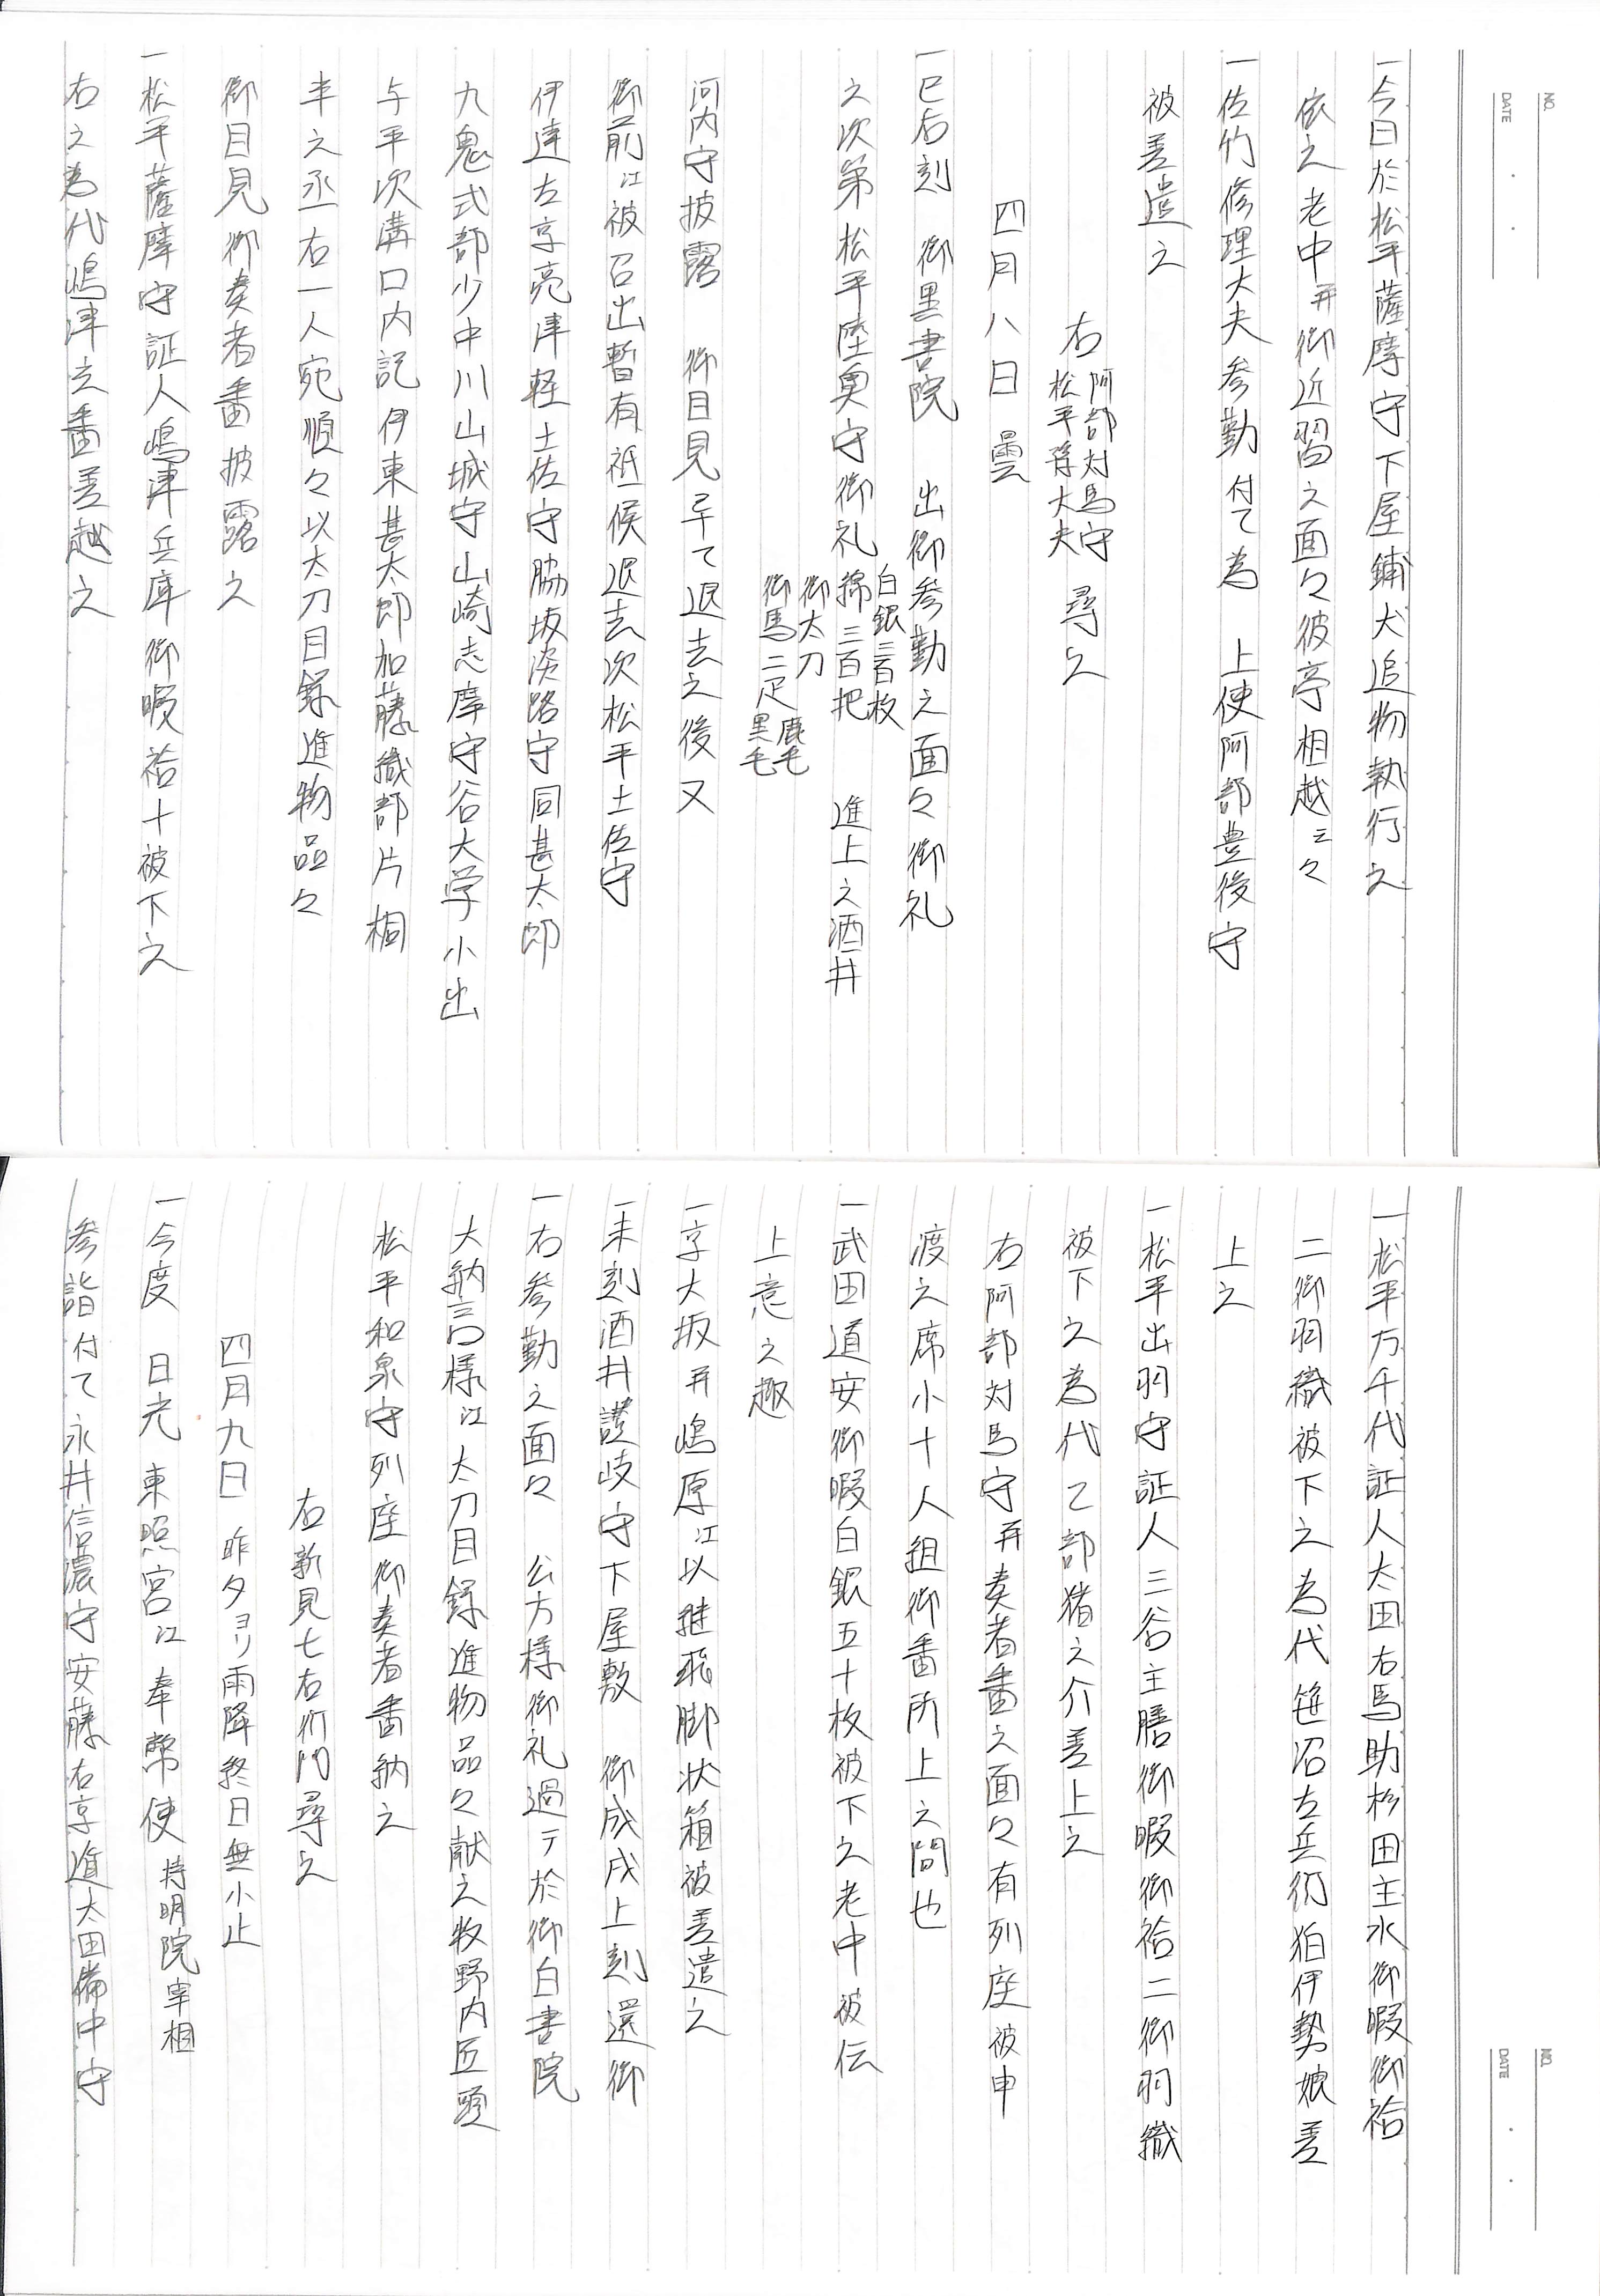 NO.
DATE
一今日於松平薩摩守下屋鋪犬追物執行之
依之老中并御近習之面々彼亭相越云々
一佐竹修理大夫参勤付て為 上使阿部豊後守
被差遣之
右阿部対馬守
松平将大夫 尋之
四月八日 曇
一巳后刻 御黒書院 出御参勤之面々御礼
之次第松平陸奥守御礼 白銀三百枚
綿三百把 進上之酒井
御太刀
御馬二疋 鹿毛
黒毛
河内守披露 御目見畢て退去之後又
御前江被召出暫有祗候退去次松平土佐守
伊達左京亮津軽土佐守脇坂淡路守同甚太郎
九鬼式部少中川山城守山崎志摩守谷大学小出
与平次溝口内記伊東甚太郎加藤織部片桐
半之丞右一人宛順々以太刀目録進物品々
御目見御奏者番披露之
一松平薩摩守証人嶋津兵庫御暇袷十被下之
右之為代嶋津玄番差越之
NO.
DATE
一松平万千代証人太田右馬助杉田主水御暇御袷
二御羽織被下之為代笹沼左兵衛狛伊勢娘差
上之
一松平出羽守証人三谷主膳御暇御袷二御羽織
被下之為代乙部猪之介差上之
右阿部対馬守并奏者番之面々有列座被申
渡之席小十人組御番所上之間也
一武田道安御暇白銀五十枚被下之老中被伝
上意之趣
一京大坂并嶋原江以継飛脚状箱被差遣之
一未刻酒井讃岐守下屋敷 御成戌上刻還御
一右参勤之面々 公方様御礼過テ於御白書院
大納言様江太刀目録進物品々献之牧野内匠頭
松平和泉守列座御奏者番納之
右新見七右衛門尋之
四月九日 昨夕ヨリ雨降終日無小止
一今度 日光 東照宮江 奉幣使 持明院宰相
参詣付て永井信濃守安藤右京進太田備中守